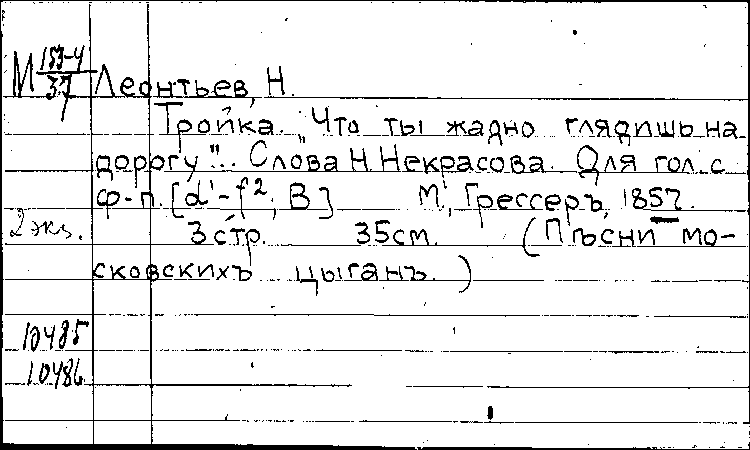 М 153-4/37 Леонтьев, Н.
Тройка. "Что ты жадно глядишь на
дорогу".. Слова Н. Некрасова. Для гол. с
ф-п. [d'-f², B] М., Грессеръ, 1857.
2 экз. 3 стр. 35 см. (Пѣсни мо-
сковскихъ цыганъ.)
10485
10486